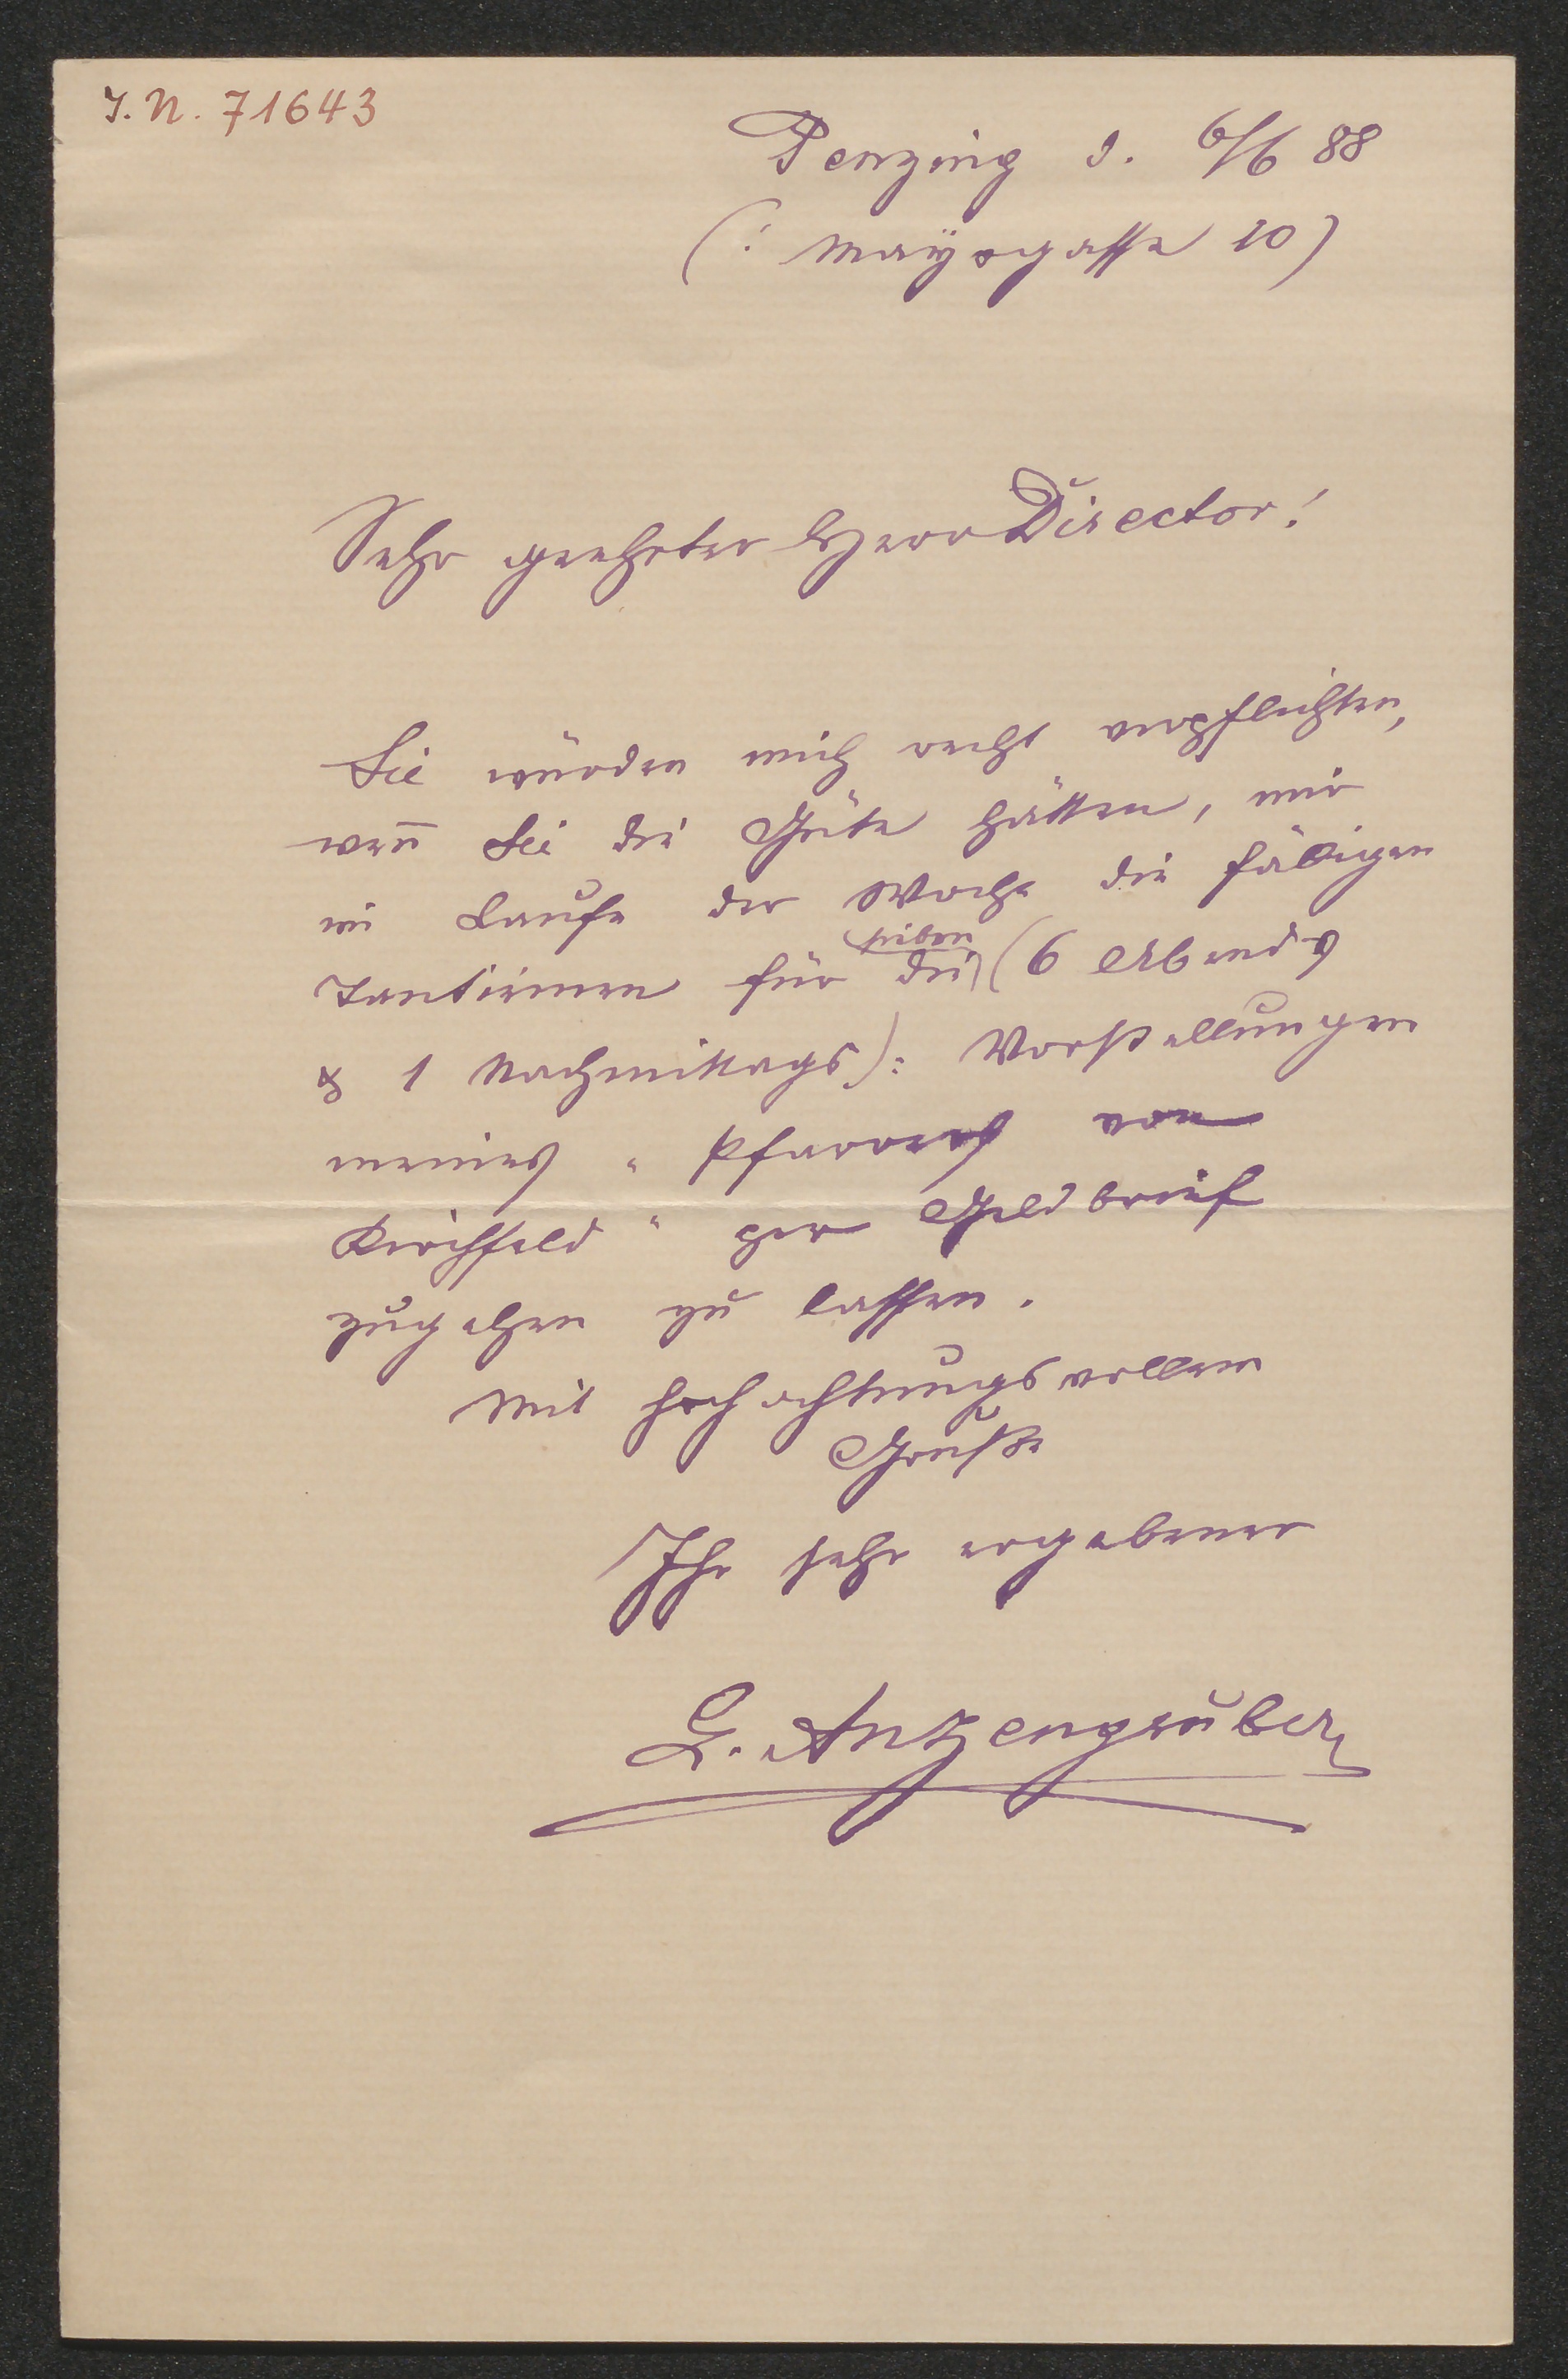 I. N. 71643
Penzing d. 6/6 88
(: Maÿrgasse 10)
Sehr geehrter Herr Director!
Sie würden mich recht verpflichten,
wen̅ Sie die Güte hätten, mir
im Laufe der Woche die fälligen
sieben
Tantiemen für die (6 Abends
& 1 Nachmittags): Vorstellungen
meines "Pfarrers von
Kirchfeld" per Geldbrief
zugehen zu lassen.
Mit hochachtungsvollem
Gruße
Ihr sehr ergebener
L. Anzengruber